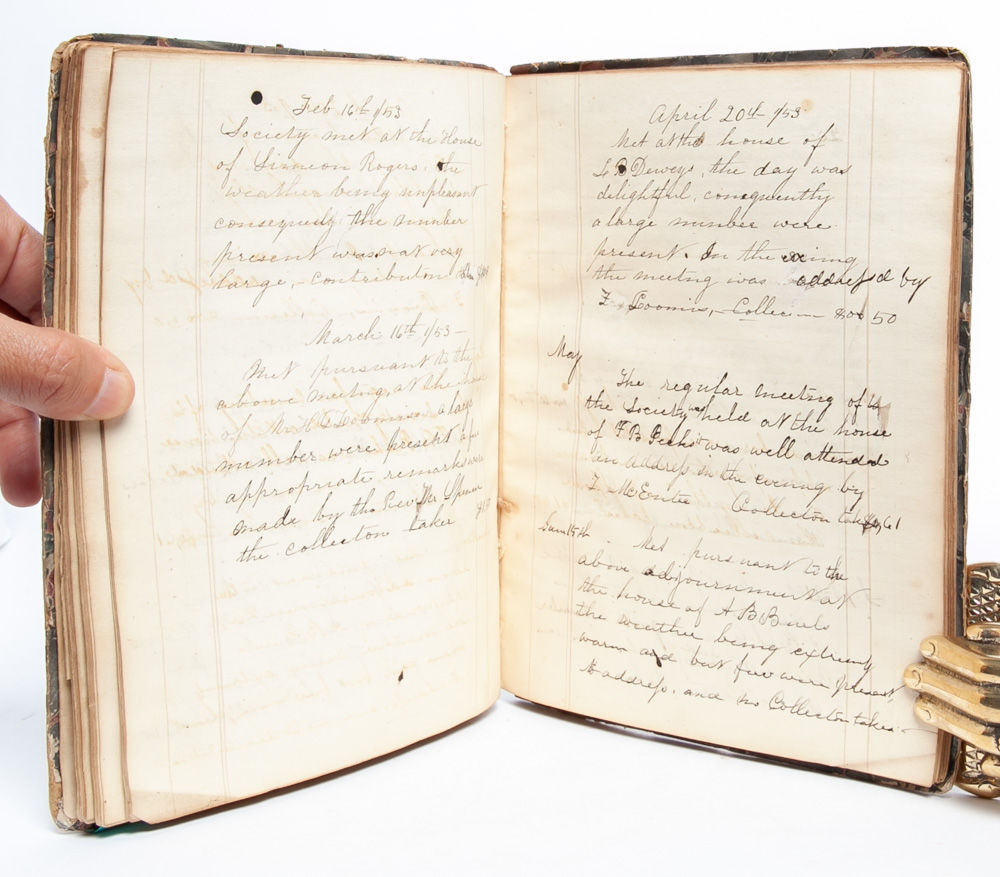 Feb 16th 1/53
Society met at the House
of Simeon Rogers, the
weather being unpleasant
consequently the number
present was not very
large, - contribution
March 16th 1/53 -
Met pursuant to the
above meeting, at the
of Mr H Loomis a large
number were present
appropriate remarks were
made by the Rev Mr Spencer
the collecton taken
April 20th 1/53
Met at the house of
L B Deweys, the day was
delightful, consequently
a large number were
present. In the
the meeting was addressd by
Loomis, - Collecion 50
May
The regular meeting of
the Society was held at the house
of F B Peeks was well attended
an address in the evening by
McEntee Collecton
15th . Met pursuant to the
above adjournment at
the house of A B
the weather being extremly
warm and but few were present,
No address, and no Collecton taken -